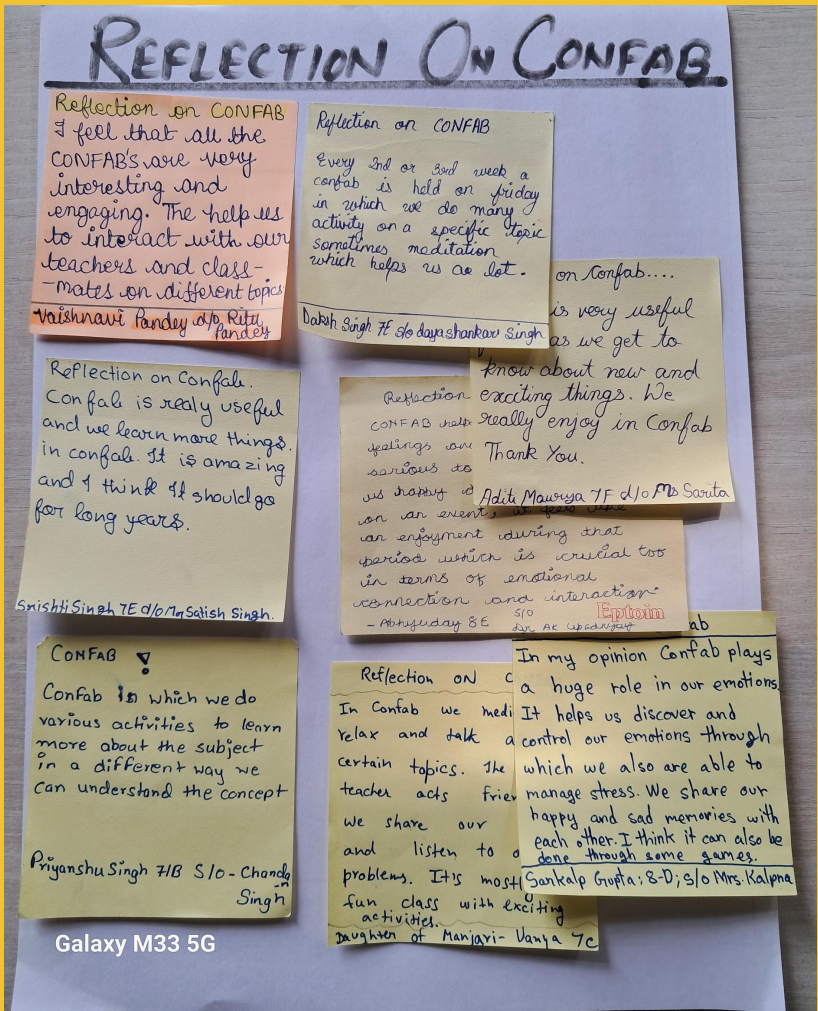 REFLECTION ON CONFAB
Reflection on CONFAB
I feel that all the
CONFAB'S are very
interesting and
engaging. The help us
to interact with our
teachers and class-
-mates on different topics
Vaishnavi Pandey d/o Ritu
Pandey
Reflection on CONFAB
Every 2nd or 3rd week a
confab is held on friday
in which we do many
activity on a specific topic
sometimes meditation
which helps us a lot.
Daksh Singh 7E s/o dayashankar Singh
on Confab....
is very useful
as we get to
know about new and
exciting things. We
really enjoy in Confab
Thank You.
Aditi Maurya 7F d/o Ms Sarita
Reflection on Confab.
Confab is realy useful
and we learn more things.
in confab. It is amazing
and I think It should go
for long years.
Srishti Singh 7E d/o Mr Satish Singh.
Reflection
CONFAB help
feelings an
serious to
us happy
on an event, it feels like
an enjoyment during that
period which is crucial too
in terms of emotional
connection and interaction
- Abhyuday 8E S/O
Dr AK
Eptoin
CONFAB !
Confab is which we do
various activities to learn
more about the subject
in a different way we
can understand the concept
Priyanshu Singh 7/B S/O - Chanda
Singh
Reflection oN C
In Confab we medi
relax and talk a
certain topics. The
teacher acts frien
we share our
and listen to
problems. It's mostl
fun class with exciting
activities.
Daughter of Manjari- Vanya 7c
ab
In my opinion Confab plays
a huge role in our emotions.
It helps us discover and
control our emotions through
which we also are able to
manage stress. We share our
happy and sad memories with
each other. I think it can also be
done through some games.
Sankalp Gupta; 8-D; s/o Mrs. Kalpna
Galaxy M33 5G